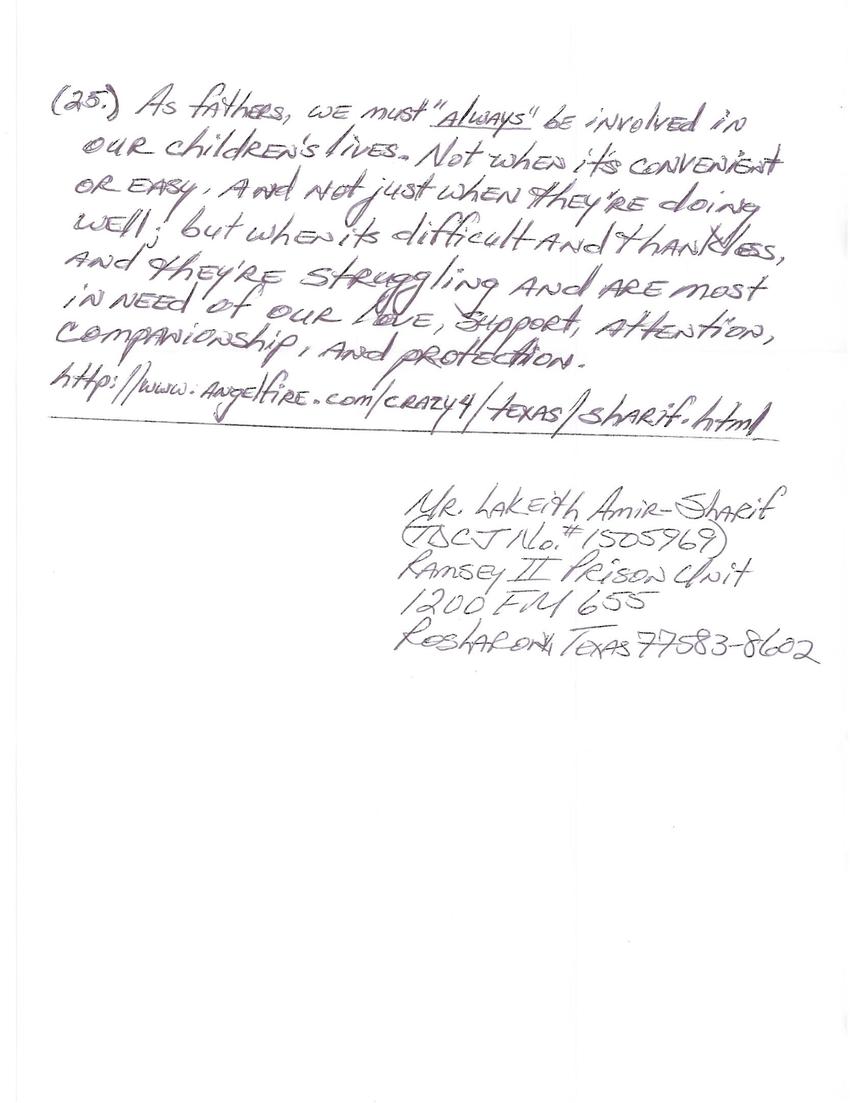 (25.) As fathers, we must "always" be involved in
our children's lives. Not when it's convenient
or easy. And not just when they're doing
well; but when its difficult and thankless,
and they're struggling and are most
in need of our love, support, attention,
companionship, and protection.
http://www.angelfire.com/crazy4/texas/sharif.html
Mr. Lakeith Amir-Sharif
(TDCJ No.# 1505969)
Ramsey II Prison Unit
1200 FM 655
Rosharon, Texas 77583-8602